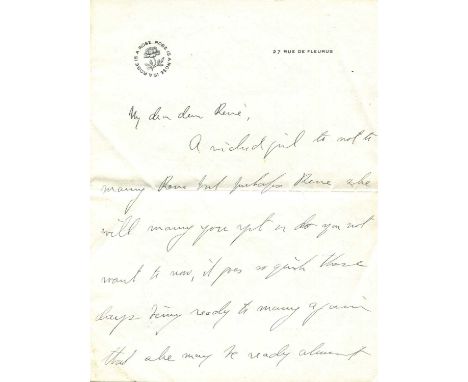 ROSE IS A ROSE IS A ROSE IS A ROSE
27 RUE DE FLEURUS
My dear dear René,
A wicked girl to not to
marry Rene but perhaps Rene, she
will marry you yet or do you not
want to now, it goes so quick these
days being ready to marry again
that she may be ready almost